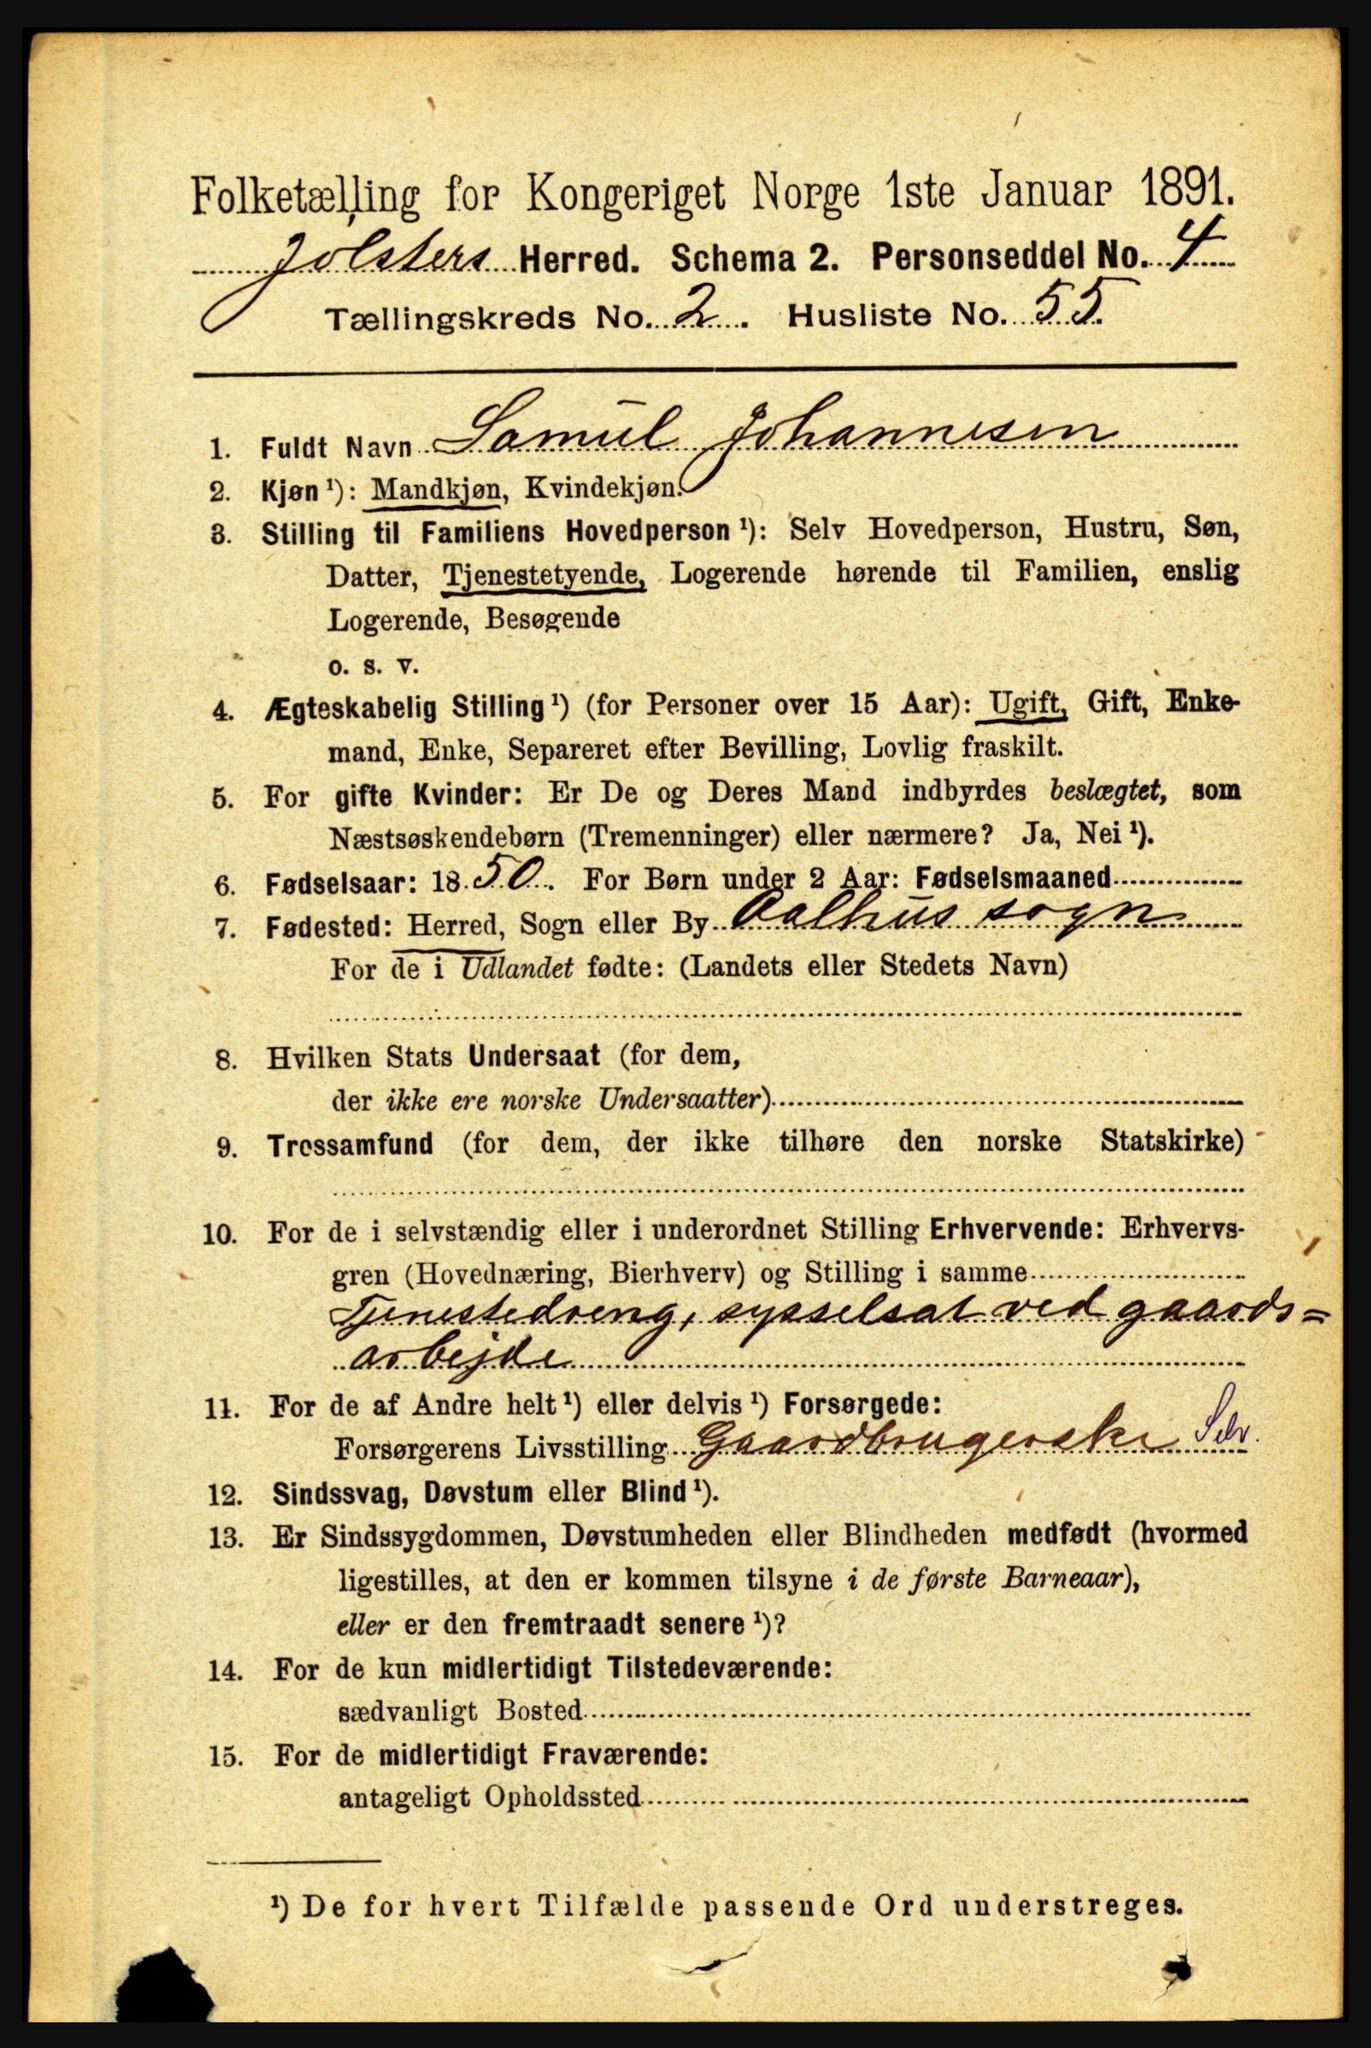 Folketælling for Kongeriget Norge 1ste Januar 1891.
Jolsters Herred. Schema 2. Personseddel No. 4
Tællingskreds No. 2. Husliste No. 55.
1. Fuldt Navn Samuel Johannesen
2. Kjøn¹): Mandkjøn, Kvindekjøn.
3. Stilling til Familiens Hovedperson¹): Selv Hovedperson, Hustru, Søn,
Datter, Tjenestetyende, Logerende hørende til Familien, enslig
Logerende, Besøgende
o. s. v.
4. Ægteskabelig Stilling¹) (for Personer over 15 Aar): Ugift, Gift, Enke-
mand, Enke, Separeret efter Bevilling, Lovlig fraskilt.
5. For gifte Kvinder: Er De og Deres Mand indbyrdes beslægtet, som
Næstsøskendebørn (Tremenninger) eller nærmere? Ja, Nei¹).
6. Fødselsaar: 1850. For Børn under 2 Aar: Fødselsmaaned
7. Fødested: Herred, Sogn eller By Aalhus sogn
For de i Udlandet fødte: (Landets eller Stedets Navn)
8. Hvilken Stats Undersaat (for dem,
der ikke ere norske Undersaatter)
9. Trossamfund (for dem, der ikke tilhøre den norske Statskirke)
10. For de i selvstændig eller i underordnet Stilling Erhvervende: Erhvervs-
gren (Hovednæring, Bierhverv) og Stilling i samme
Tjenestedreng, sysselsat ved gaards=
arbejde
11. For de af Andre helt¹) eller delvis¹) Forsørgede:
Forsørgerens Livsstilling Gaardbrugerske Selv.
12. Sindssvag, Døvstum eller Blind¹).
13. Er Sindssygdommen, Døvstumheden eller Blindheden medfødt (hvormed
ligestilles, at den er kommen tilsyne i de første Barneaar),
eller er den fremtraadt senere¹)?
14. For de kun midlertidigt Tilstedeværende:
sædvanligt Bosted
15. For de midlertidigt Fraværende:
antageligt Opholdssted
¹) De for hvert Tilfælde passende Ord understreges.